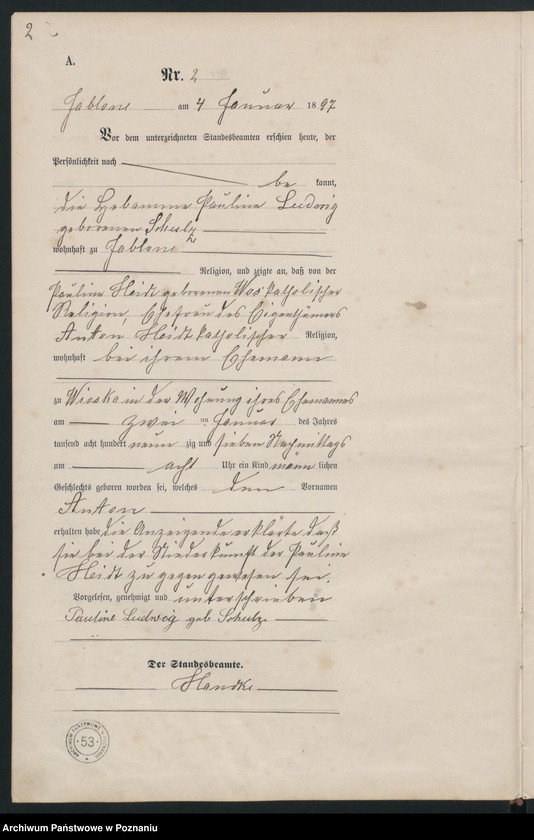 2
A.
Nr. 2
Jablone am 4 Januar 1897
Vor dem unterzeichneten Standesbeamten erschien heute, der
Persönlichkeit nach
be kannt,
die Hebamme Pauline Ludwig
geborenen Schulz
wohnhaft zu Jablone
Religion, und zeigte an, daß von der
Pauline Heidt geborenen Wos katholischer
Religion, Ehefrau des Eigenthümers
Anton Heidt katholischer Religion,
wohnhaft bei ihrem Ehemann
zu Wioska in der Wohnung ihres Ehemannes
am zwei ten Januar des Jahres
tausend acht hundert neun zig und sieben Nachmittags
um acht Uhr ein Kind männ lichen
Geschlechts geboren worden sei, welches den Vornamen
Anton
erhalten habe die Anzeigende erklärte daß
sie bei der Niederkunft der Pauline
Heidt zu gegen gewesen sei.
Vorgelesen, genehmigt und unterschrieben
Pauline Ludwig geb. Schulz
Der Standesbeamte.
Handke
ARCHIWUM PAŃSTWOWE W POZNANIU
53
Archiwum Państwowe w Poznaniu